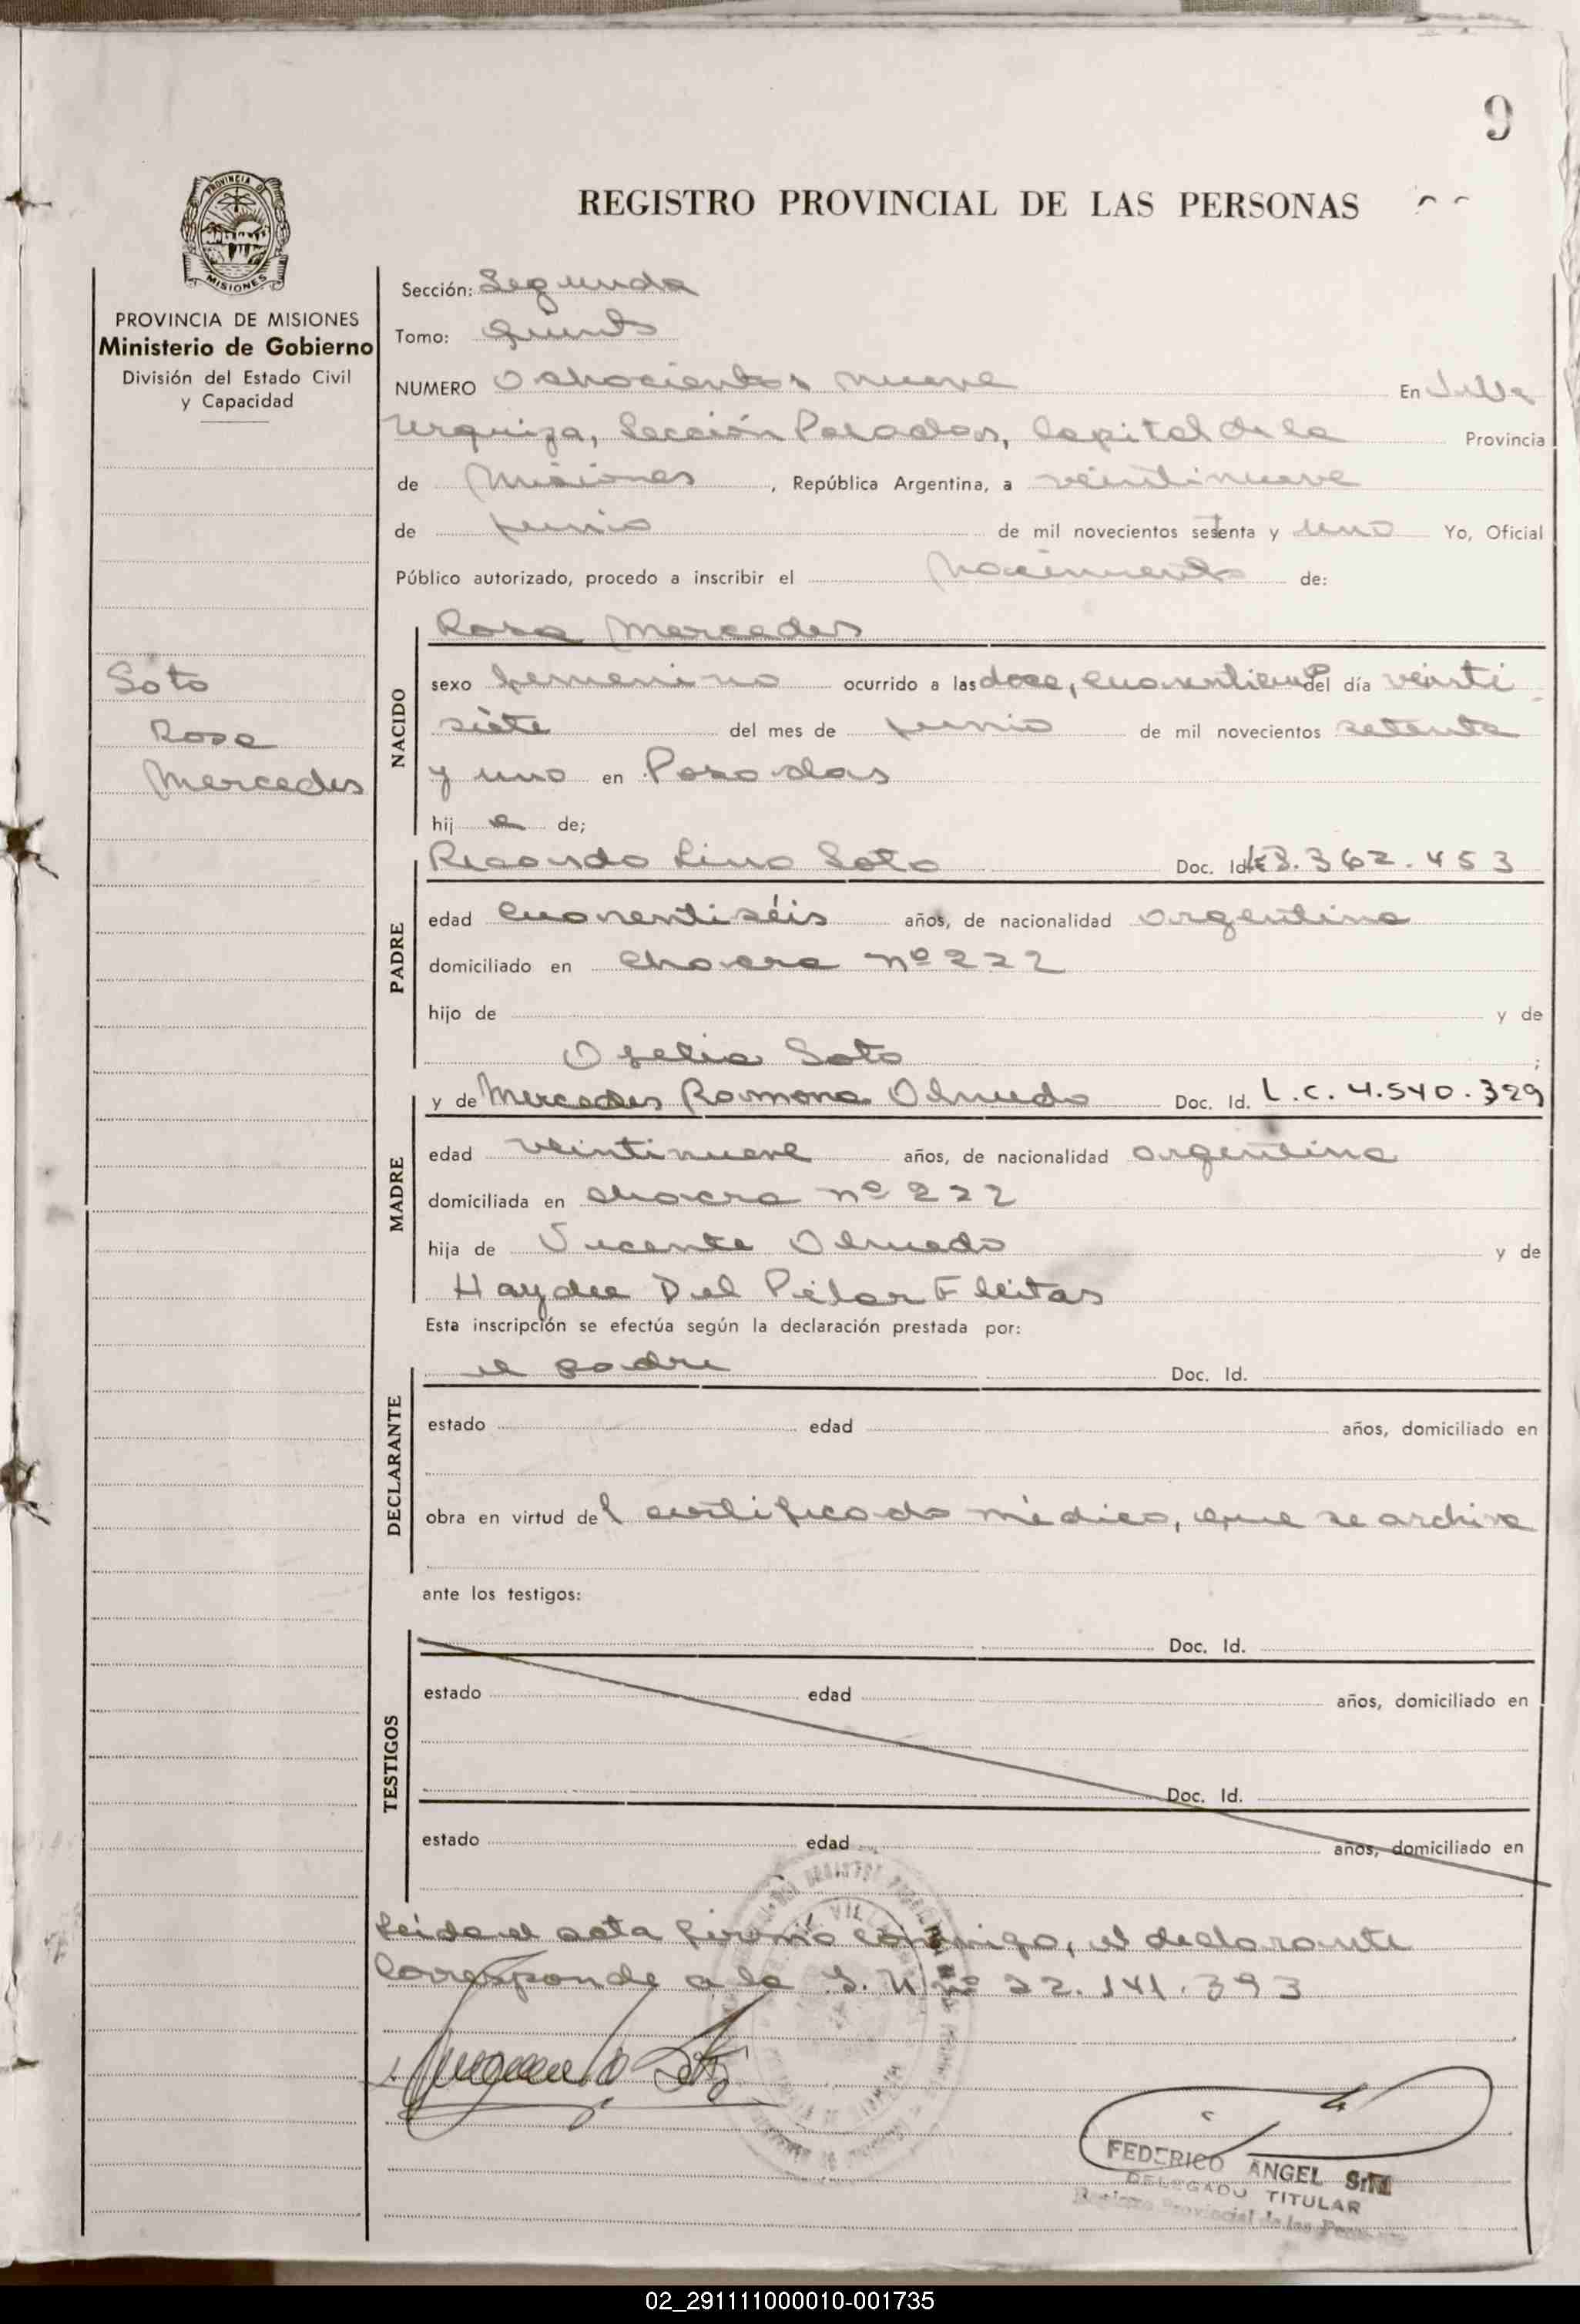 9
REGISTRO PROVINCIAL DE LAS PERSONAS
PROVINCIA DE
MISIONES
PROVINCIA DE MISIONES
Ministerio de Gobierno
División del Estado Civil
y Capacidad
Soto
Rosa
Mercedes
Sección: Segunda
Tomo: Quinto
NUMERO Ochocientos nueve En Villa
Urquiza, Sección Posadas, Capital de la Provincia
de Misiones, República Argentina, a veintinueve
de junio de mil novecientos setenta y uno Yo, Oficial
Público autorizado, procedo a inscribir el Nacimiento de:
NACIDO
Rosa Mercedes
sexo femenino ocurrido a las doce, del día veinti
siete del mes de junio de mil novecientos setenta
y uno en Posadas
hij a de;
PADRE
Ricardo Lino Soto Doc. Id. 3.362.453
edad cuarentiséis años, de nacionalidad argentina
domiciliado en chacra nº 222
hijo de y de
Ofelia Soto ;
MADRE
y de Mercedes Ramona Olmedo Doc. Id. L.C. 4.540.329
edad veintinueve años, de nacionalidad argentina
domiciliada en chacra nº 222
hija de Vicente Olmedo y de
Haydee Del Pilar Fleitas
Esta inscripción se efectúa según la declaración prestada por:
DECLARANTE
el padre Doc. Id.
estado edad años, domiciliado en
obra en virtud del certificado médico, que se archiva
ante los testigos:
TESTIGOS
Doc. Id.
estado edad años, domiciliado en
Doc. Id.
estado edad años, domiciliado en
Leída el acta firmó conmigo, el declarante
Corresponde a la nº 22.141.393
Soto
FEDERICO ANGEL
DELEGADO TITULAR
Registro Provincial de las Personas
02_291111000010-001735